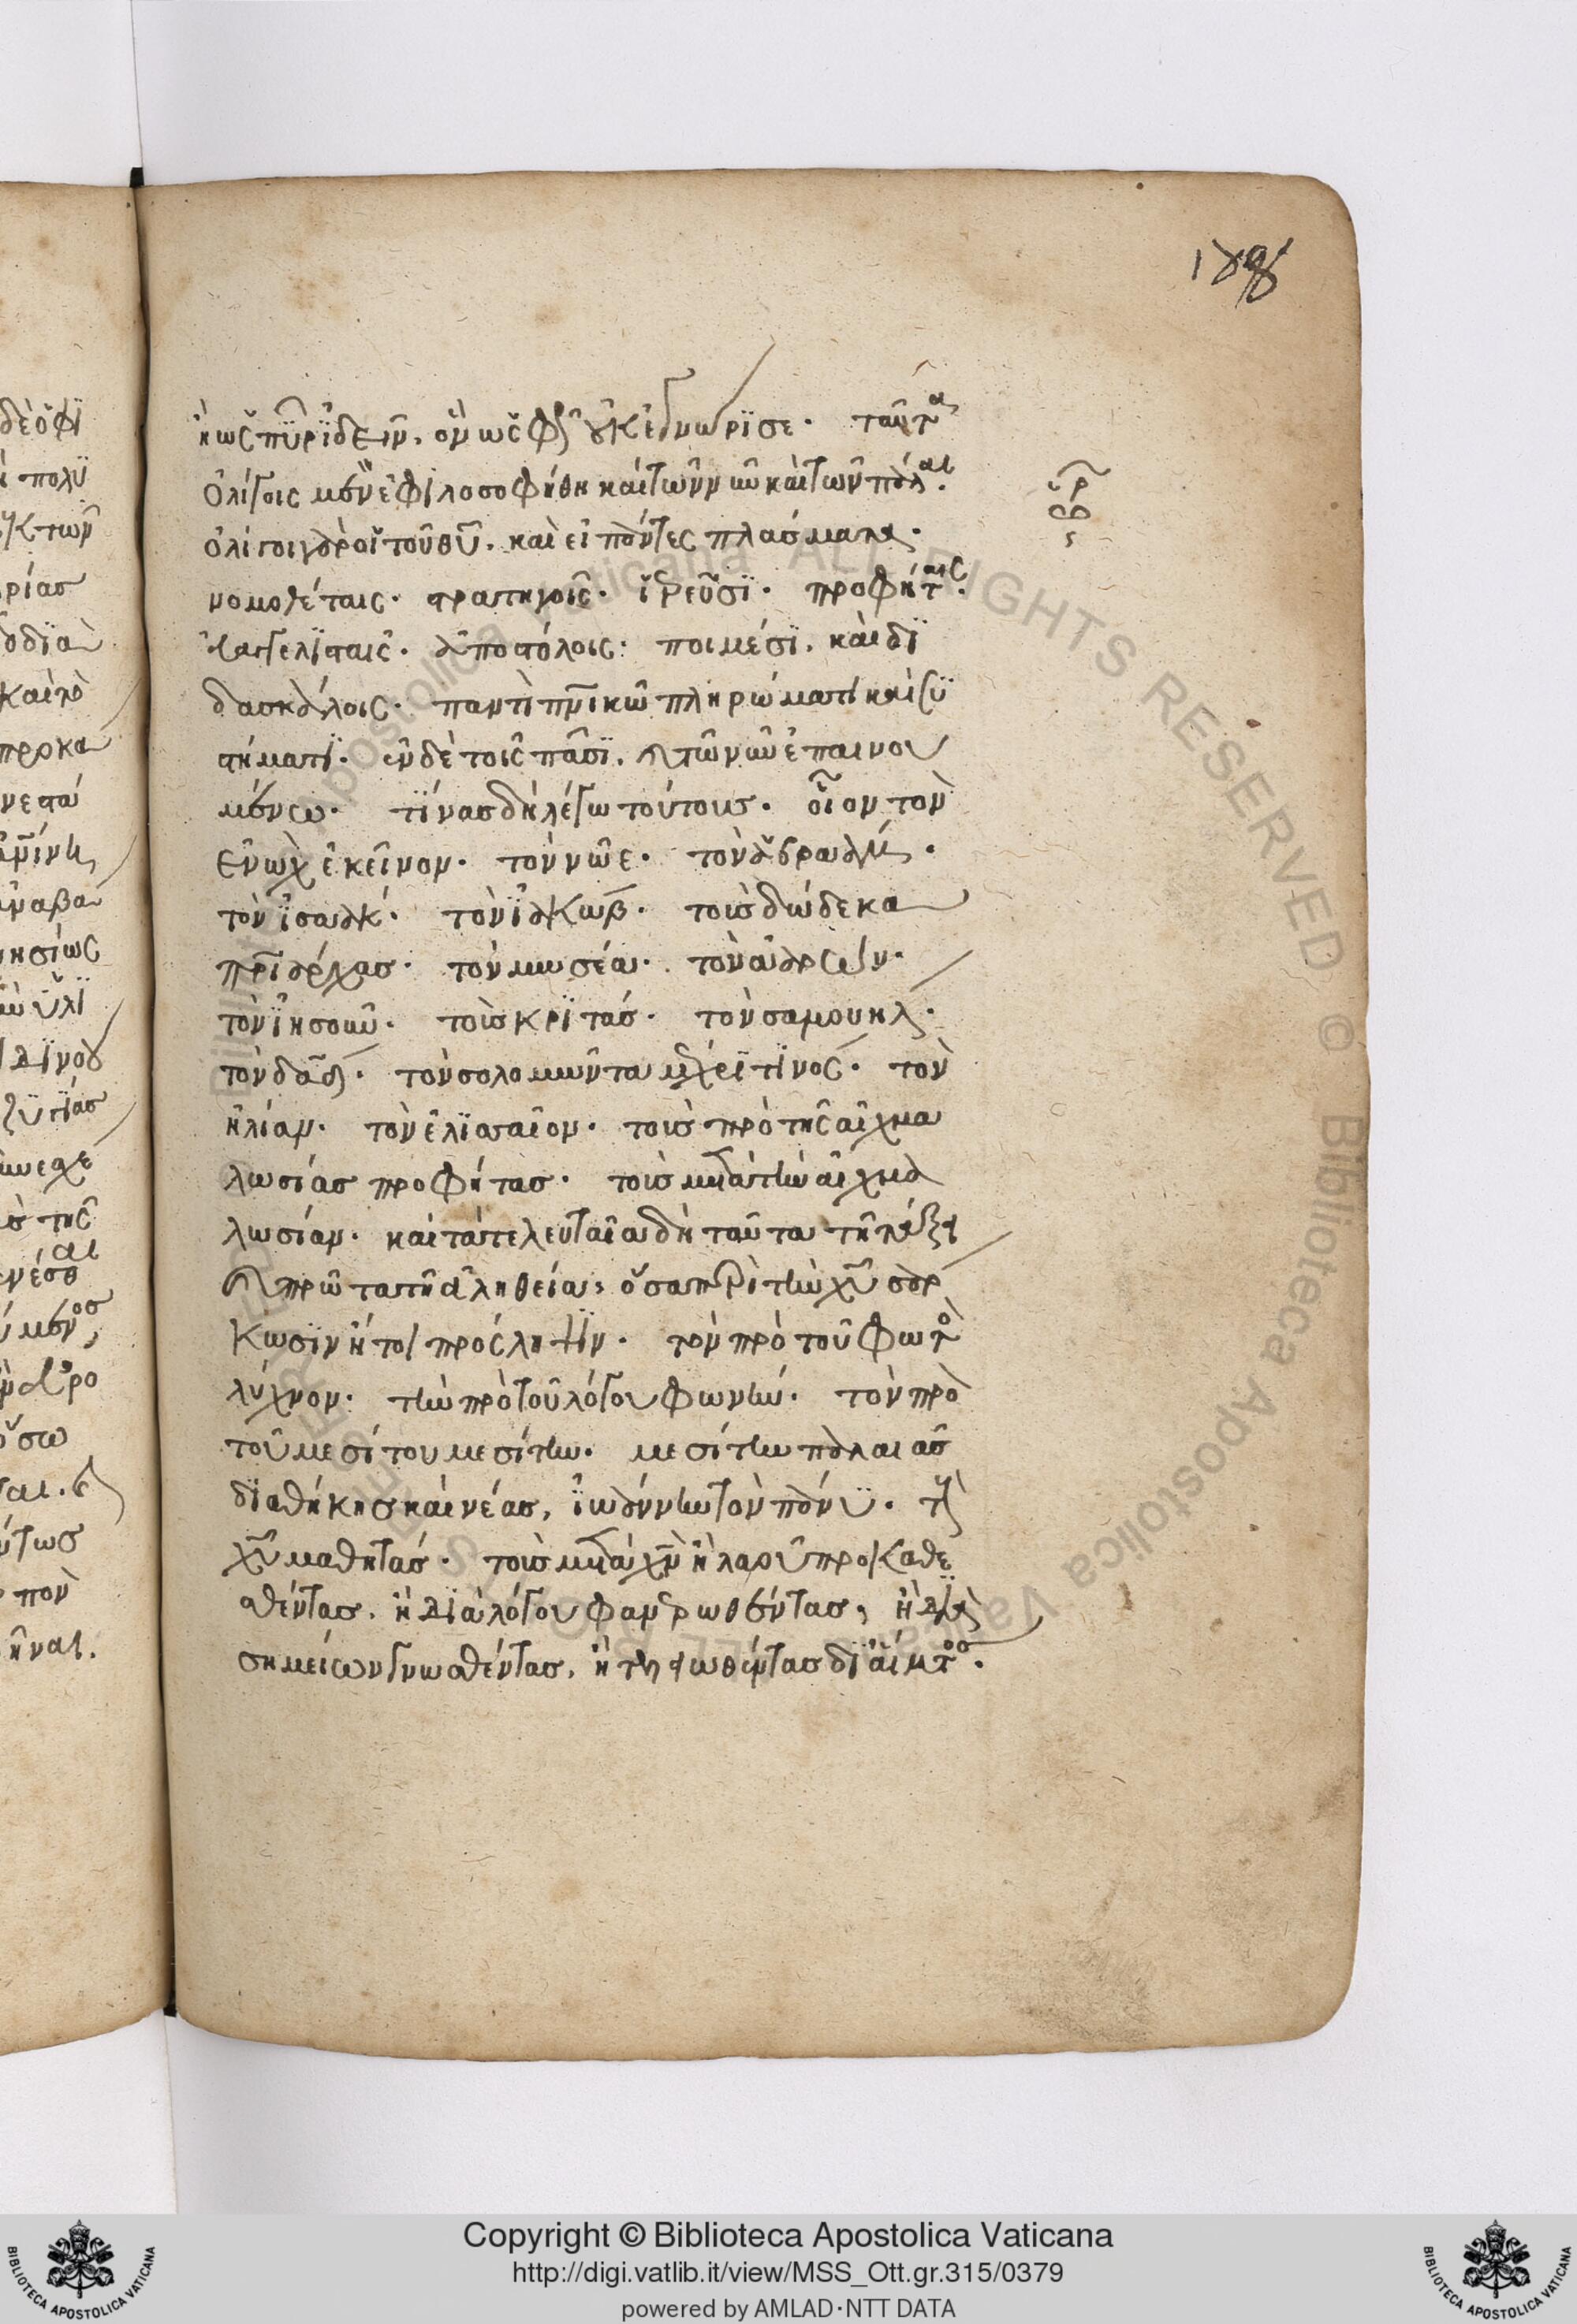 ἢ ὡς πῦρ ἰδεῖν, ὃν ὡς φῶς οὐκ ἐγνώρισε. ταῦτα
ὀλίγοις μὲν ἐφιλοσοφήθη καὶ τῶν νῦν καὶ τῶν πάλαι.
ὀλίγοι γὰρ οἱ τοῦ θυ. καὶ εἰ πάντες πλάσματα.
νομοθέταις. στρατηγοῖς. ἱερεῦσι. προφήταις.
εὐαγγελισταῖς. ἀποστόλοις. ποιμέσι. καὶ δι
δασκάλοις. παντὶ πνικῶ πληρώματι καὶ συ
στήματι. ἐν δὲ τοῖς πᾶσι, καὶ τῶ νῦν ἐπαινου
μένω. τίνας δὴ λέγω τούτους. οἷον τὸν
ἐνὼχ ἐκεῖνον. τὸν νῶε. τὸν ἀβραάμ.
τὸν ἰσαάκ. τὸν ἰακώβ. τοὺς δώδεκα
πριάρχας. τὸν μωσέα. τὸν ἀαρών.
τὸν ἰησοῦν. τοὺς κριτάς. τὸν σαμουήλ.
τὸν δαδ. τὸν σολομῶντα μέχρι τινός. τὸν
ἠλίαν. τὸν ἐλισσαῖον. τοὺς πρὸ τῆς αἰχμα
λωσίας προφήτας. τοὺς μετὰ τὴν αἰχμα
λωσίαν. καὶ τὰ τελευταῖα δὴ ταῦτα τῆ τάξει
καὶ πρῶτα τῆ ἀληθεία, ὅσα περὶ τὴν χυ σάρ
κωσιν ἤτοι πρόσληψιν. τὸν πρὸ τοῦ φωτὸς
λύχνον. τὴν πρὸ τοῦ λόγου φωνήν. τὸν πρὸ
τοῦ μεσίτου μεσίτην. μεσίτην παλαιᾶς
διαθήκης καὶ νέας, ἰωάννην τὸν πάνυ. τοὺς
χυ μαθητάς. τοὺς μετὰ χν ἢ λαοῦ προκαθε
σθέντας. ἢ διὰ λόγου φανερωθέντας, ἢ διὰ
σημείων γνωσθέντας, ἢ τελειωθέντας δι αἵματος.